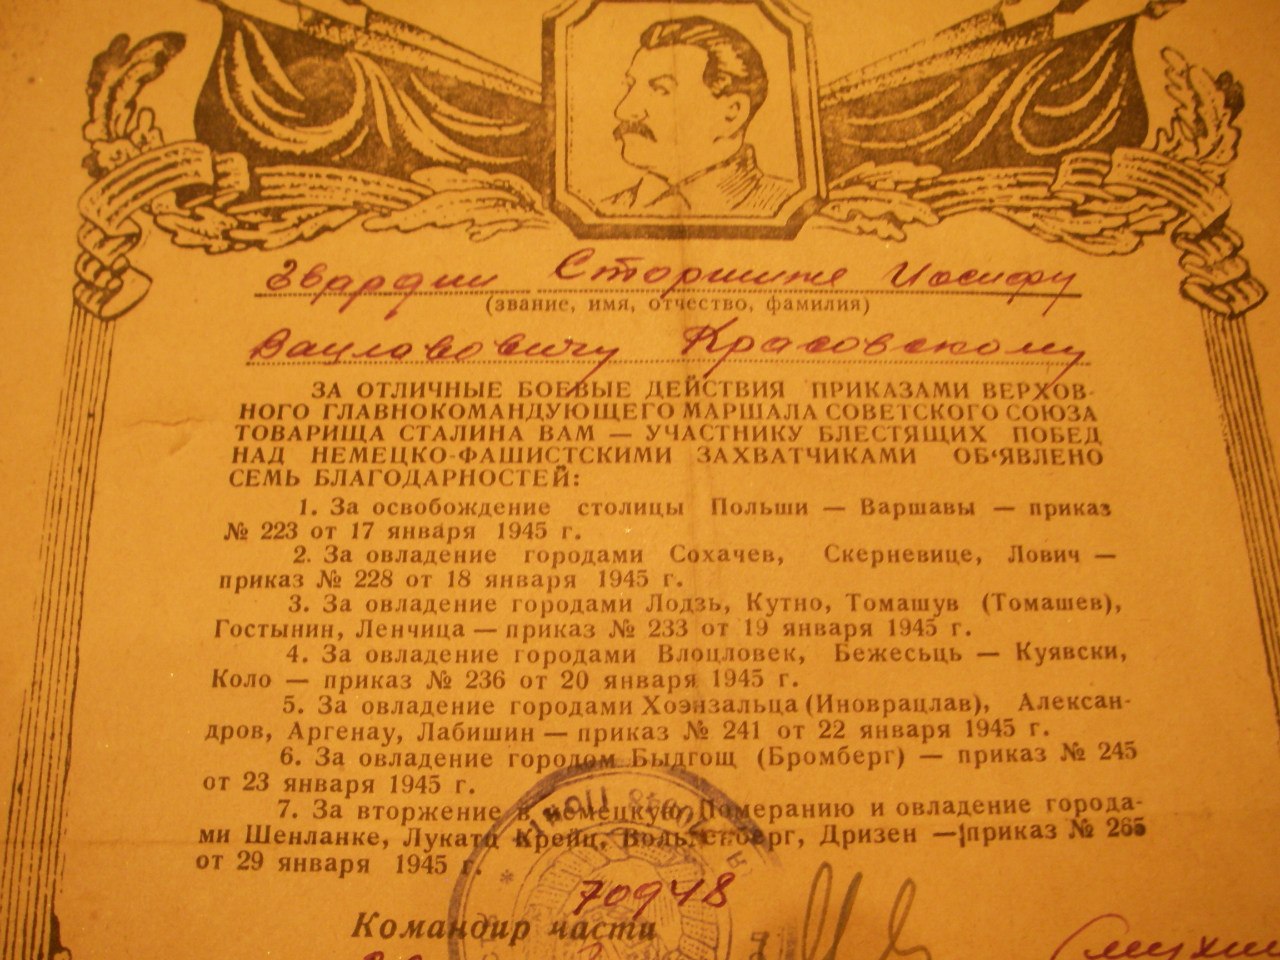 Гвардии Старшине Иосифу
(звание, имя, отчество, фамилия)
Вацлавовичу Красовскому
ЗА ОТЛИЧНЫЕ БОЕВЫЕ ДЕЙСТВИЯ ПРИКАЗАМИ ВЕРХОВ-
НОГО ГЛАВНОКОМАНДУЮЩЕГО МАРШАЛА СОВЕТСКОГО СОЮЗА
ТОВАРИЩА СТАЛИНА ВАМ — УЧАСТНИКУ БЛЕСТЯЩИХ ПОБЕД
НАД НЕМЕЦКО-ФАШИСТСКИМИ ЗАХВАТЧИКАМИ ОБ'ЯВЛЕНО
СЕМЬ БЛАГОДАРНОСТЕЙ:
1. За освобождение столицы Польши — Варшавы — приказ
№ 223 от 17 января 1945 г.
2. За овладение городами Сохачев, Скерневице, Лович —
приказ № 228 от 18 января 1945 г.
3. За овладение городами Лодзь, Кутно, Томашув (Томашев),
Гостынин, Ленчица — приказ № 233 от 19 января 1945 г.
4. За овладение городами Влоцловек, Бежесьць — Куявски,
Коло — приказ № 236 от 20 января 1945 г.
5. За овладение городами Хоэнзальца (Иноврацлав), Алексан-
дров, Аргенау, Лабишин — приказ № 241 от 22 января 1945 г.
6. За овладение городом Быдгощ (Бромберг) — приказ № 245
от 23 января 1945 г.
7. За вторжение в немецкую Померанию и овладение города-
ми Шенланке, Лукатц Крейц, Вольденберг, Дризен — приказ № 265
от 29 января 1945 г.
70948
Командир части